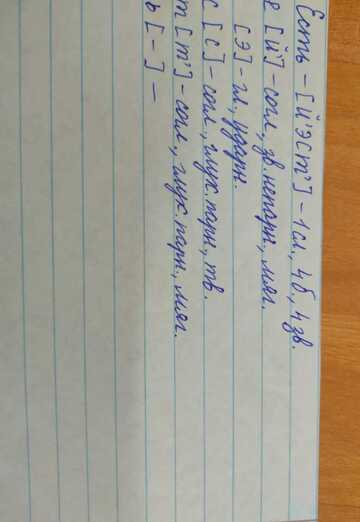 Есть - [й'эст'] - 1 сл., 4 б, 4 зв.
е [й'] - согл., зв. непарн., мяг.
[э] - гл., ударн.
с [с] - согл., глух. парн., тв.
т [т'] - согл., глух. парн., мяг.
ь [-] -